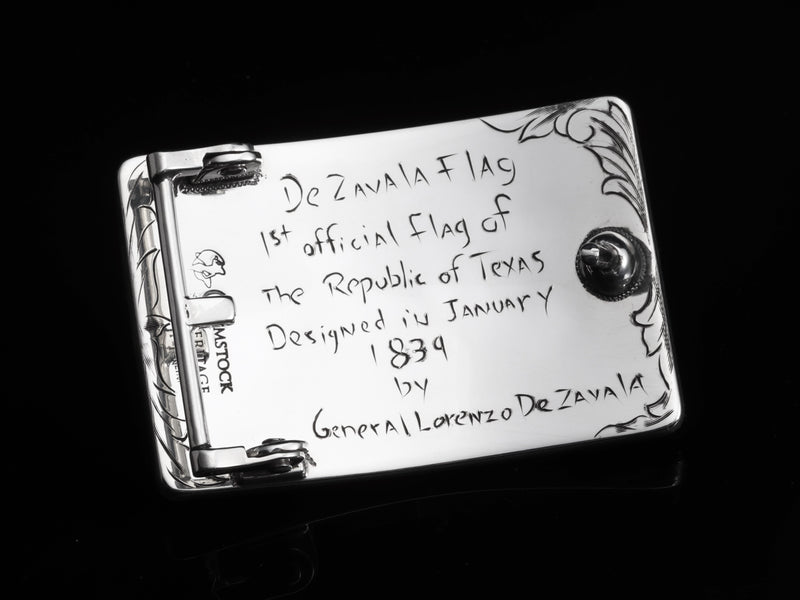 De Zavala Flag
1st official Flag of
The Republic of Texas
Designed in January
1839
by
General Lorenzo De Zavala
MSTOCK
ERITAGE